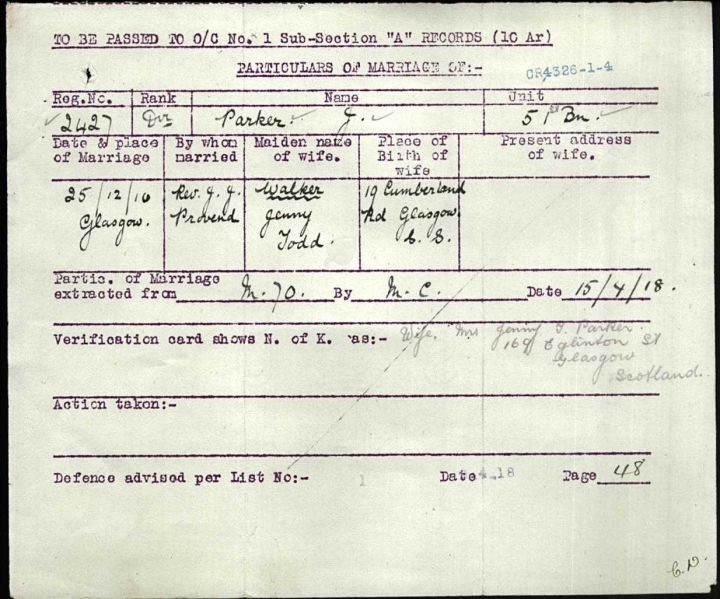 TO BE PASSED TO O/C No. 1 Sub-Section "A" RECORDS (10 Ar)
PARTICULARS OF MARRIAGE OF:-
CR4326-1-4
Reg.No. Rank Name Unit
2427 Dvr Parker J. 51st Bn.
Date & place of Marriage
By whom married
Maiden name of wife.
Place of Birth of wife
Present address of wife.
25/12/16 Glasgow.
Rev. J. J. Provend
Walker Jenny Todd.
19 Cumberland Rd Glasgow S.S.
Partic. of Marriage
extracted from M. 70. By M. C. Date 15/4/18.
Verification card shows N. of K. as:- Wife. Mrs Jenny T. Parker.
169 Eglinton St
Glasgow
Scotland.
Action taken:-
Defence advised per List No:- 1 Date 4.18 Page 48
C.D.